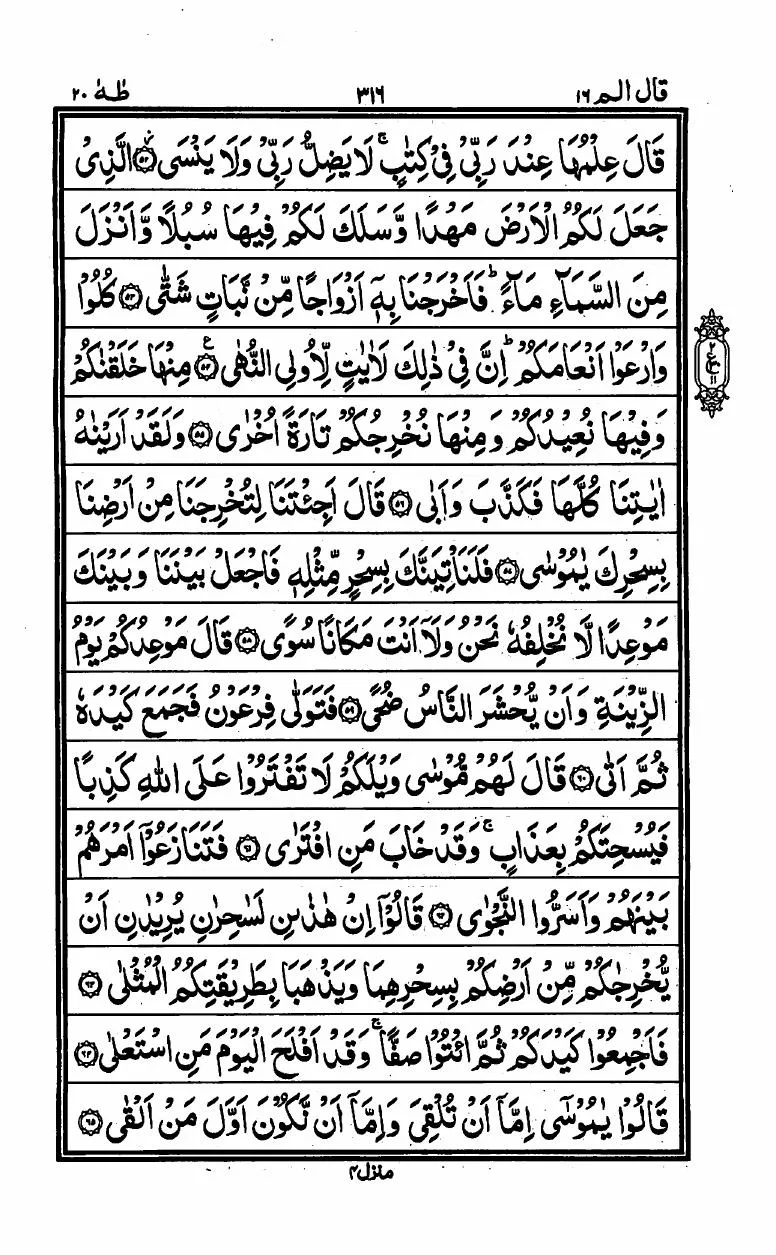 قال الم ١٦ ٣١٦ طٰهٰ ٢٠
قَالَ عِلْمُهَا عِنْدَ رَبِّیْ فِیْ كِتٰبٍ ۚ لَا یَضِلُّ رَبِّیْ وَلَا یَنْسَی ﴿۵۲﴾ الَّذِیْ
جَعَلَ لَكُمُ الْاَرْضَ مَهْدًا وَّسَلَكَ لَكُمْ فِیْهَا سُبُلًا وَّاَنْزَلَ
مِنَ السَّمَآءِ مَآءً ؕ فَاَخْرَجْنَا بِهٖۤ اَزْوَاجًا مِّنْ نَّبَاتٍ شَتّٰی ﴿۵۳﴾ كُلُوْا
وَارْعَوْا اَنْعَامَكُمْ ؕ اِنَّ فِیْ ذٰلِكَ لَاٰیٰتٍ لِّاُولِی النُّهٰی ﴿۵۴﴾ مِنْهَا خَلَقْنٰكُمْ
وَفِیْهَا نُعِیْدُكُمْ وَمِنْهَا نُخْرِجُكُمْ تَارَةً اُخْرٰی ﴿۵۵﴾ وَلَقَدْ اَرَیْنٰهُ
اٰیٰتِنَا كُلَّهَا فَكَذَّبَ وَاَبٰی ﴿۵۶﴾ قَالَ اَجِئْتَنَا لِتُخْرِجَنَا مِنْ اَرْضِنَا
بِسِحْرِكَ یٰمُوْسٰی ﴿۵۷﴾ فَلَنَاْتِیَنَّكَ بِسِحْرٍ مِّثْلِهٖ فَاجْعَلْ بَیْنَنَا وَبَیْنَكَ
مَوْعِدًا لَّا نُخْلِفُهٗ نَحْنُ وَلَاۤ اَنْتَ مَكَانًا سُوًی ﴿۵۸﴾ قَالَ مَوْعِدُكُمْ یَوْمُ
الزِّیْنَةِ وَاَنْ یُّحْشَرَ النَّاسُ ضُحًی ﴿۵۹﴾ فَتَوَلّٰی فِرْعَوْنُ فَجَمَعَ كَیْدَهٗ
ثُمَّ اَتٰی ﴿۶۰﴾ قَالَ لَهُمْ مُّوْسٰی وَیْلَكُمْ لَا تَفْتَرُوْا عَلَی اللّٰهِ كَذِبًا
فَیُسْحِتَكُمْ بِعَذَابٍ ۚ وَقَدْ خَابَ مَنِ افْتَرٰی ﴿۶۱﴾ فَتَنَازَعُوْۤا اَمْرَهُمْ
بَیْنَهُمْ وَاَسَرُّوا النَّجْوٰی ﴿۶۲﴾ قَالُوْۤا اِنْ هٰذٰىنِ لَسٰحِرٰنِ یُرِیْدٰنِ اَنْ
یُّخْرِجٰكُمْ مِّنْ اَرْضِكُمْ بِسِحْرِهِمَا وَیَذْهَبَا بِطَرِیْقَتِكُمُ الْمُثْلٰی ﴿۶۳﴾
فَاَجْمِعُوْا كَیْدَكُمْ ثُمَّ ائْتُوْا صَفًّا ۚ وَقَدْ اَفْلَحَ الْیَوْمَ مَنِ اسْتَعْلٰی ﴿۶۴﴾
قَالُوْا یٰمُوْسٰۤی اِمَّاۤ اَنْ تُلْقِیَ وَاِمَّاۤ اَنْ نَّكُوْنَ اَوَّلَ مَنْ اَلْقٰی ﴿۶۵﴾
منزل ۴